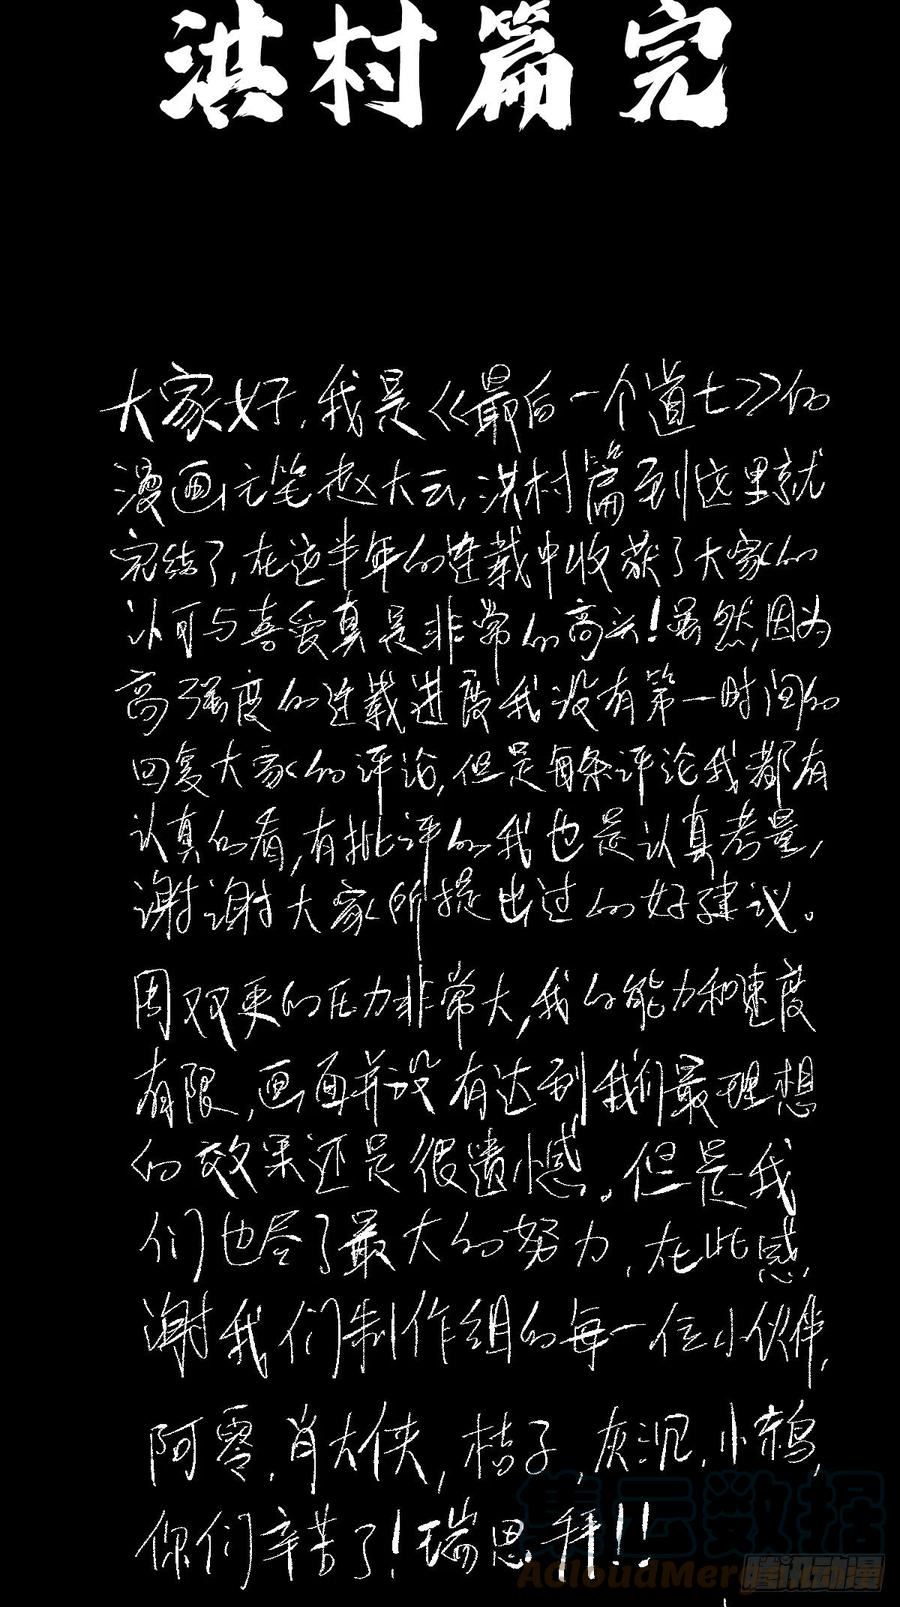 洪村篇完
大家好,我是《最后一个道士》的
漫画主笔赵大云,洪村篇到这里就
完结了,在这半年的连载中收获了大家的
认可与喜爱真是非常的高兴!虽然,因为
高强度的连载进度我没有第一时间的
回复大家的评论,但是每条评论我都有
认真的看,有批评的我也是认真考量,
谢谢大家所提出过的好建议。
周双更的压力非常大,我的能力和速度
有限,画面并没有达到我们最理想
的效果还是很遗憾。但是我
们也尽了最大的努力,在此感
谢我们制作组的每一位小伙伴,
阿零,肖大侠,桔子,灰泥,小鹅,
你们辛苦了!瑞思拜!!
集云数据
AcloudMerge
腾讯动漫